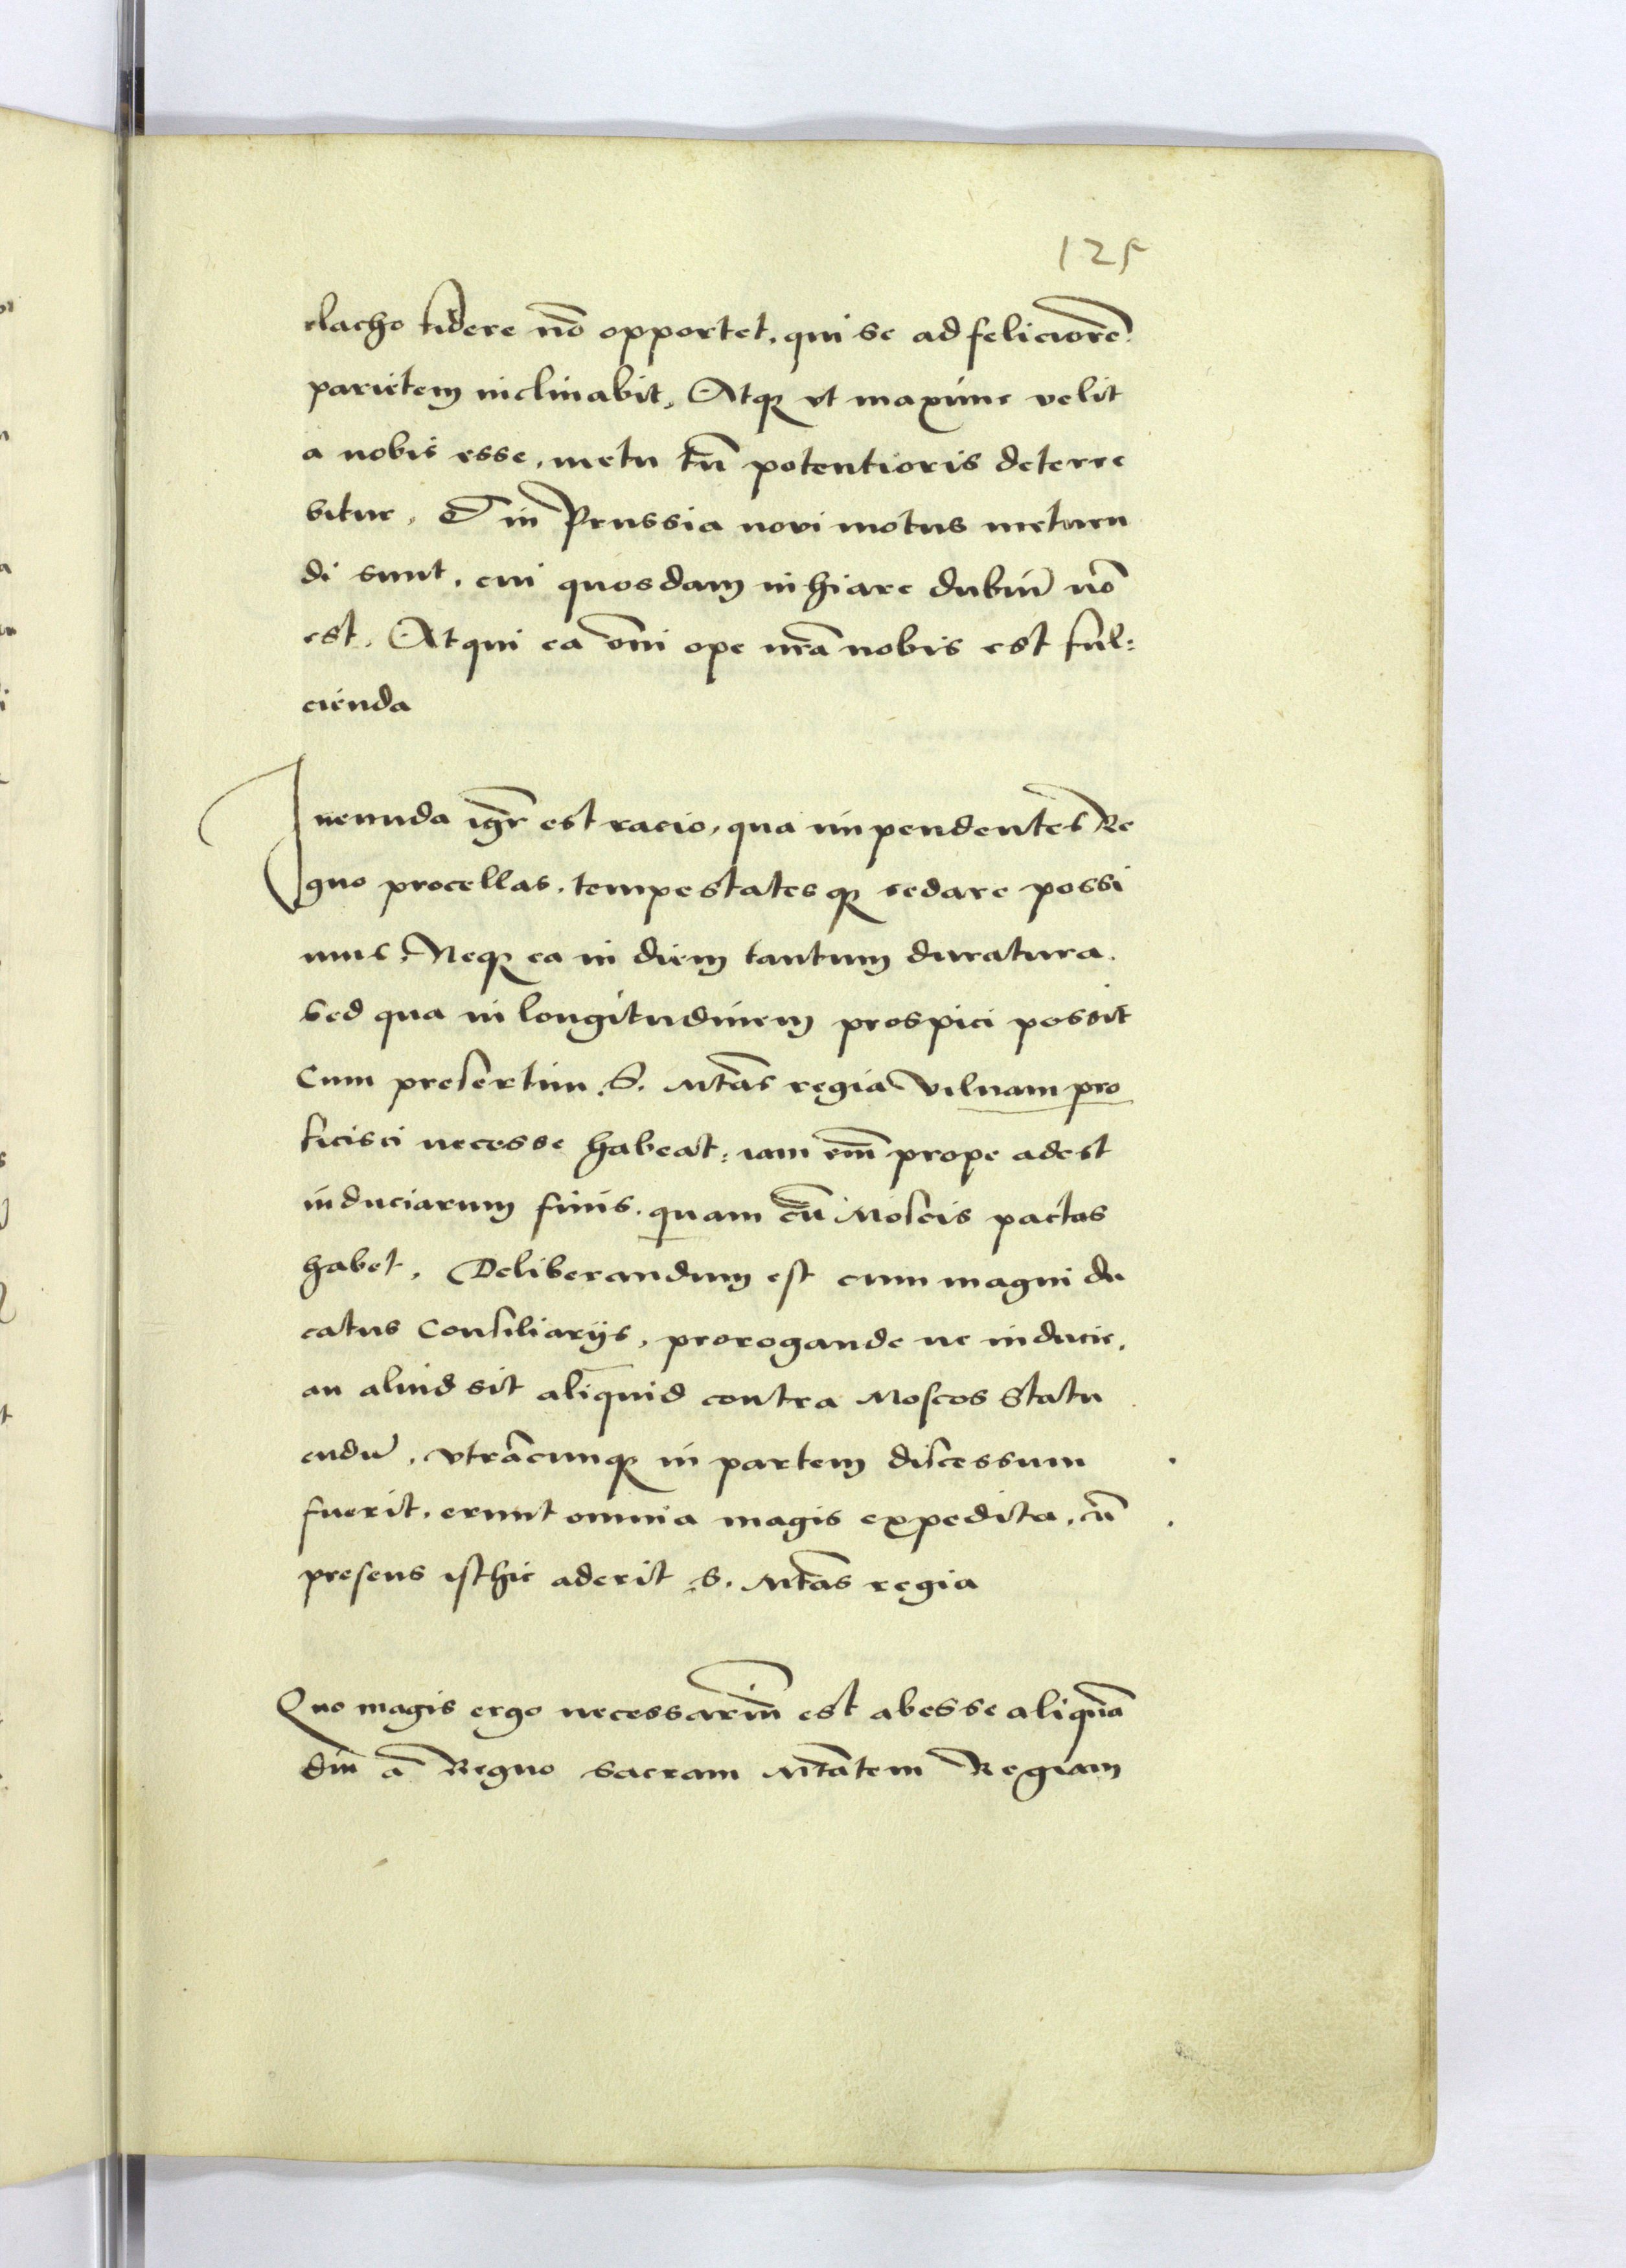 125
lacho fidere nō opportet, qui se ad feliciorē
parietem inclinabit, Atqʒ vt maxime velit
a nobis esse, metu tn̄ potentioris deterre
bitur, Et in Prussia novi motus metuen
di sunt, cui quosdam inhiare dubiū nō
est, Atqui ea om̄i ope nrā nobis est ful:
cienda
Ineunda igr̄ est racio, qua impendentes Re
gno procellas, tempestatesqʒ sedare possi
mus, Neqʒ ea in diem tantum duratura.
Sed qua in longitudinem prospici possit
Cum presertim S. Mtās regia Vilnam pro
ficisci necesse habeat: iam em̄ prope adest
induciarum finis, quam cū Moscis pactas
habet, Deliberandum est cum magni du
catus Consiliarijs, prorogande ne inducie,
an aliud sit aliquid contra Moscos Statu
endū, vtrācunqʒ in partem discessum
fuerit, erunt omnia magis expedita, cū
presens isthic aderit S. Mtās regia
Quo magis ergo necessariū est abesse aliquā
diu a Regno sacram Mtātem Regiam